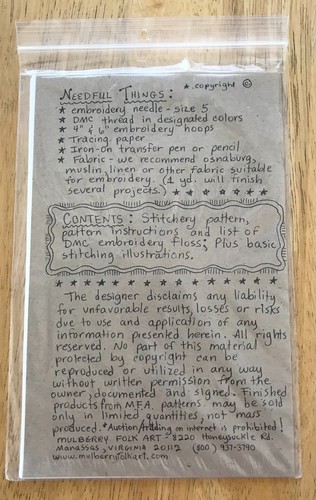 NEEDFUL THINGS: ★ copyright ©
★ embroidery needle - size 5
★ DMC thread in designated colors
★ 4" & 6" embroidery hoops
★ Tracing paper
★ Iron-on transfer pen or pencil
★ Fabric - we recommend osnaburg,
muslin, linen or other fabric suitable
for embroidery. (1 yd. will finish
several projects.) ★ ★ ★ ★ ★ ★ ★
CONTENTS: Stitchery pattern,
pattern instructions and list of
DMC embroidery floss; Plus basic
stitching illustrations.
★ ★ ★ ★ ★ ★ ★ ★ ★ ★ ★ ★ ★ ★ ★ ★
The designer disclaims any liability
for unfavorable results, losses or risks
due to use and application of any
information presented herein. All rights
reserved. No part of this material
protected by copyright can be
reproduced or utilized in any way
without written permission from the
owner, documented and signed. Finished
products from M.F.A. patterns may be sold
only in limited quantities, not mass
produced. *Auction/trading on internet is prohibited!
MULBERRY FOLK ART - 8220 Honeysuckle Rd.
Manassas, VIRGINIA 20112 (800) 937-3740
www.mulberryfolkart.com